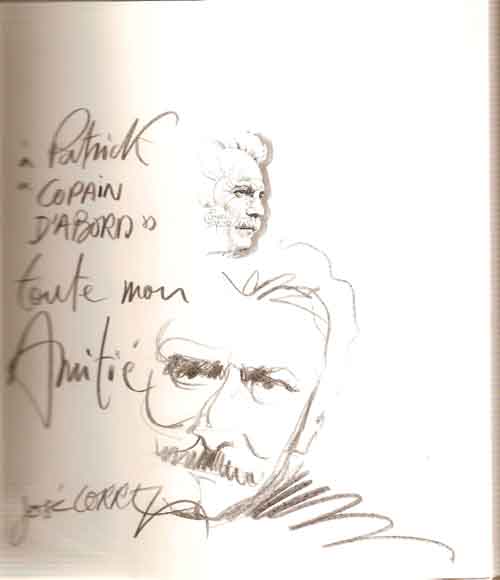 à Patrick
"COPAIN
D'ABORD"
toute mon
Amitié,
José CORRÉA